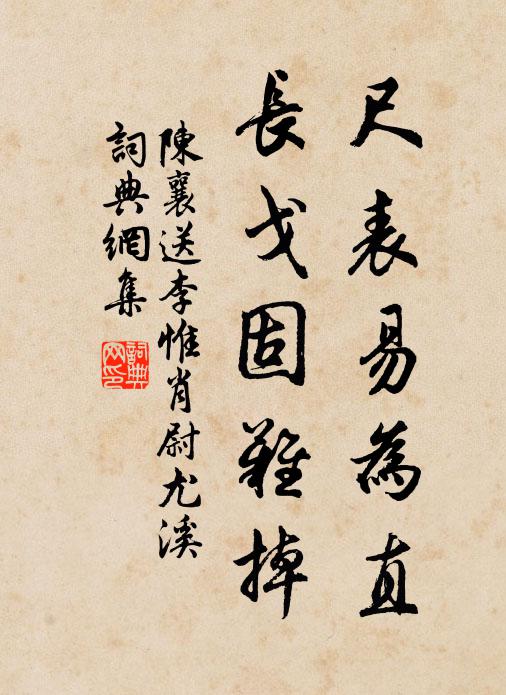 尺表易為直
長戈固難掉
陳襄送李惟肖尉尤溪
詞典網集
詞典網印